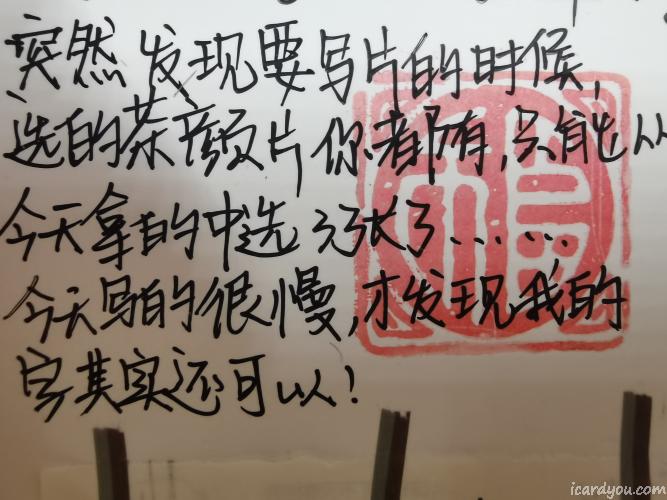 突然发现要写片的时候,
选的茶颜片你都有,只能从
今天拿的中选了张了......
今天写的很慢,才发现我的
字其实还可以!
icardyou.com